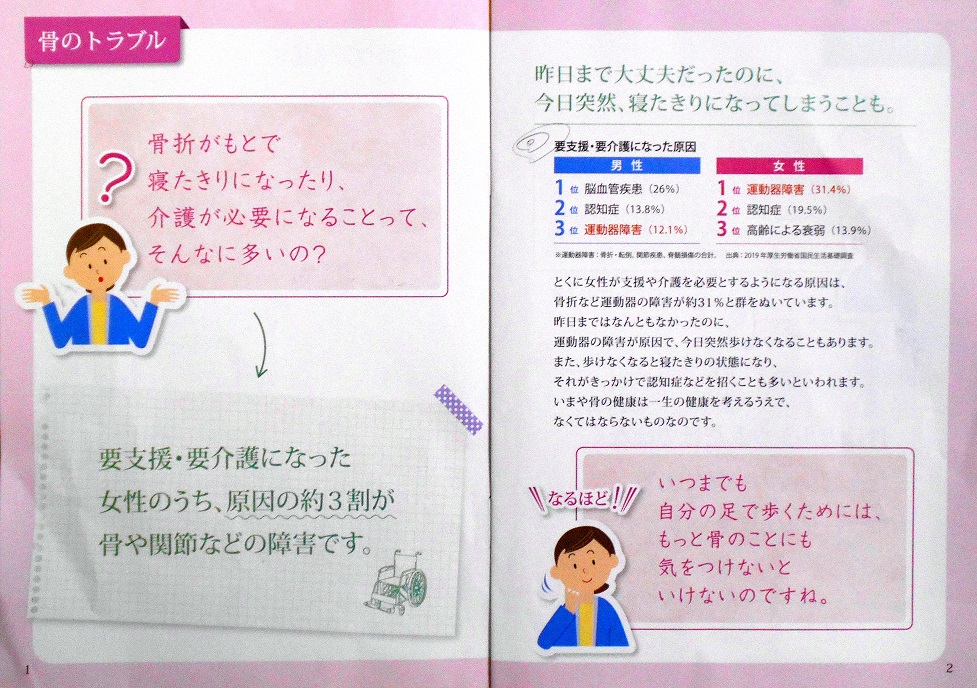 骨のトラブル
骨折がもとで
寝たきりになったり、
介護が必要になることって、
そんなに多いの?
?
要支援・要介護になった
女性のうち、原因の約3割が
骨や関節などの障害です。
1
昨日まで大丈夫だったのに、
今日突然、寝たきりになってしまうことも。
要支援・要介護になった原因
男性
1位 脳血管疾患(26%)
2位 認知症(13.8%)
3位 運動器障害(12.1%)
女性
1位 運動器障害(31.4%)
2位 認知症(19.5%)
3位 高齢による衰弱(13.9%)
※運動器障害:骨折・転倒、関節疾患、脊髄損傷の合計。 出典:2019年厚生労働省国民生活基礎調査
とくに女性が支援や介護を必要とするようになる原因は、
骨折など運動器の障害が約31%と群をぬいています。
昨日まではなんともなかったのに、
運動器の障害が原因で、今日突然歩けなくなることもあります。
また、歩けなくなると寝たきりの状態になり、
それがきっかけで認知症などを招くことも多いといわれます。
いまや骨の健康は一生の健康を考えるうえで、
なくてはならないものなのです。
なるほど!
いつまでも
自分の足で歩くためには、
もっと骨のことにも
気をつけないと
いけないのですね。
2